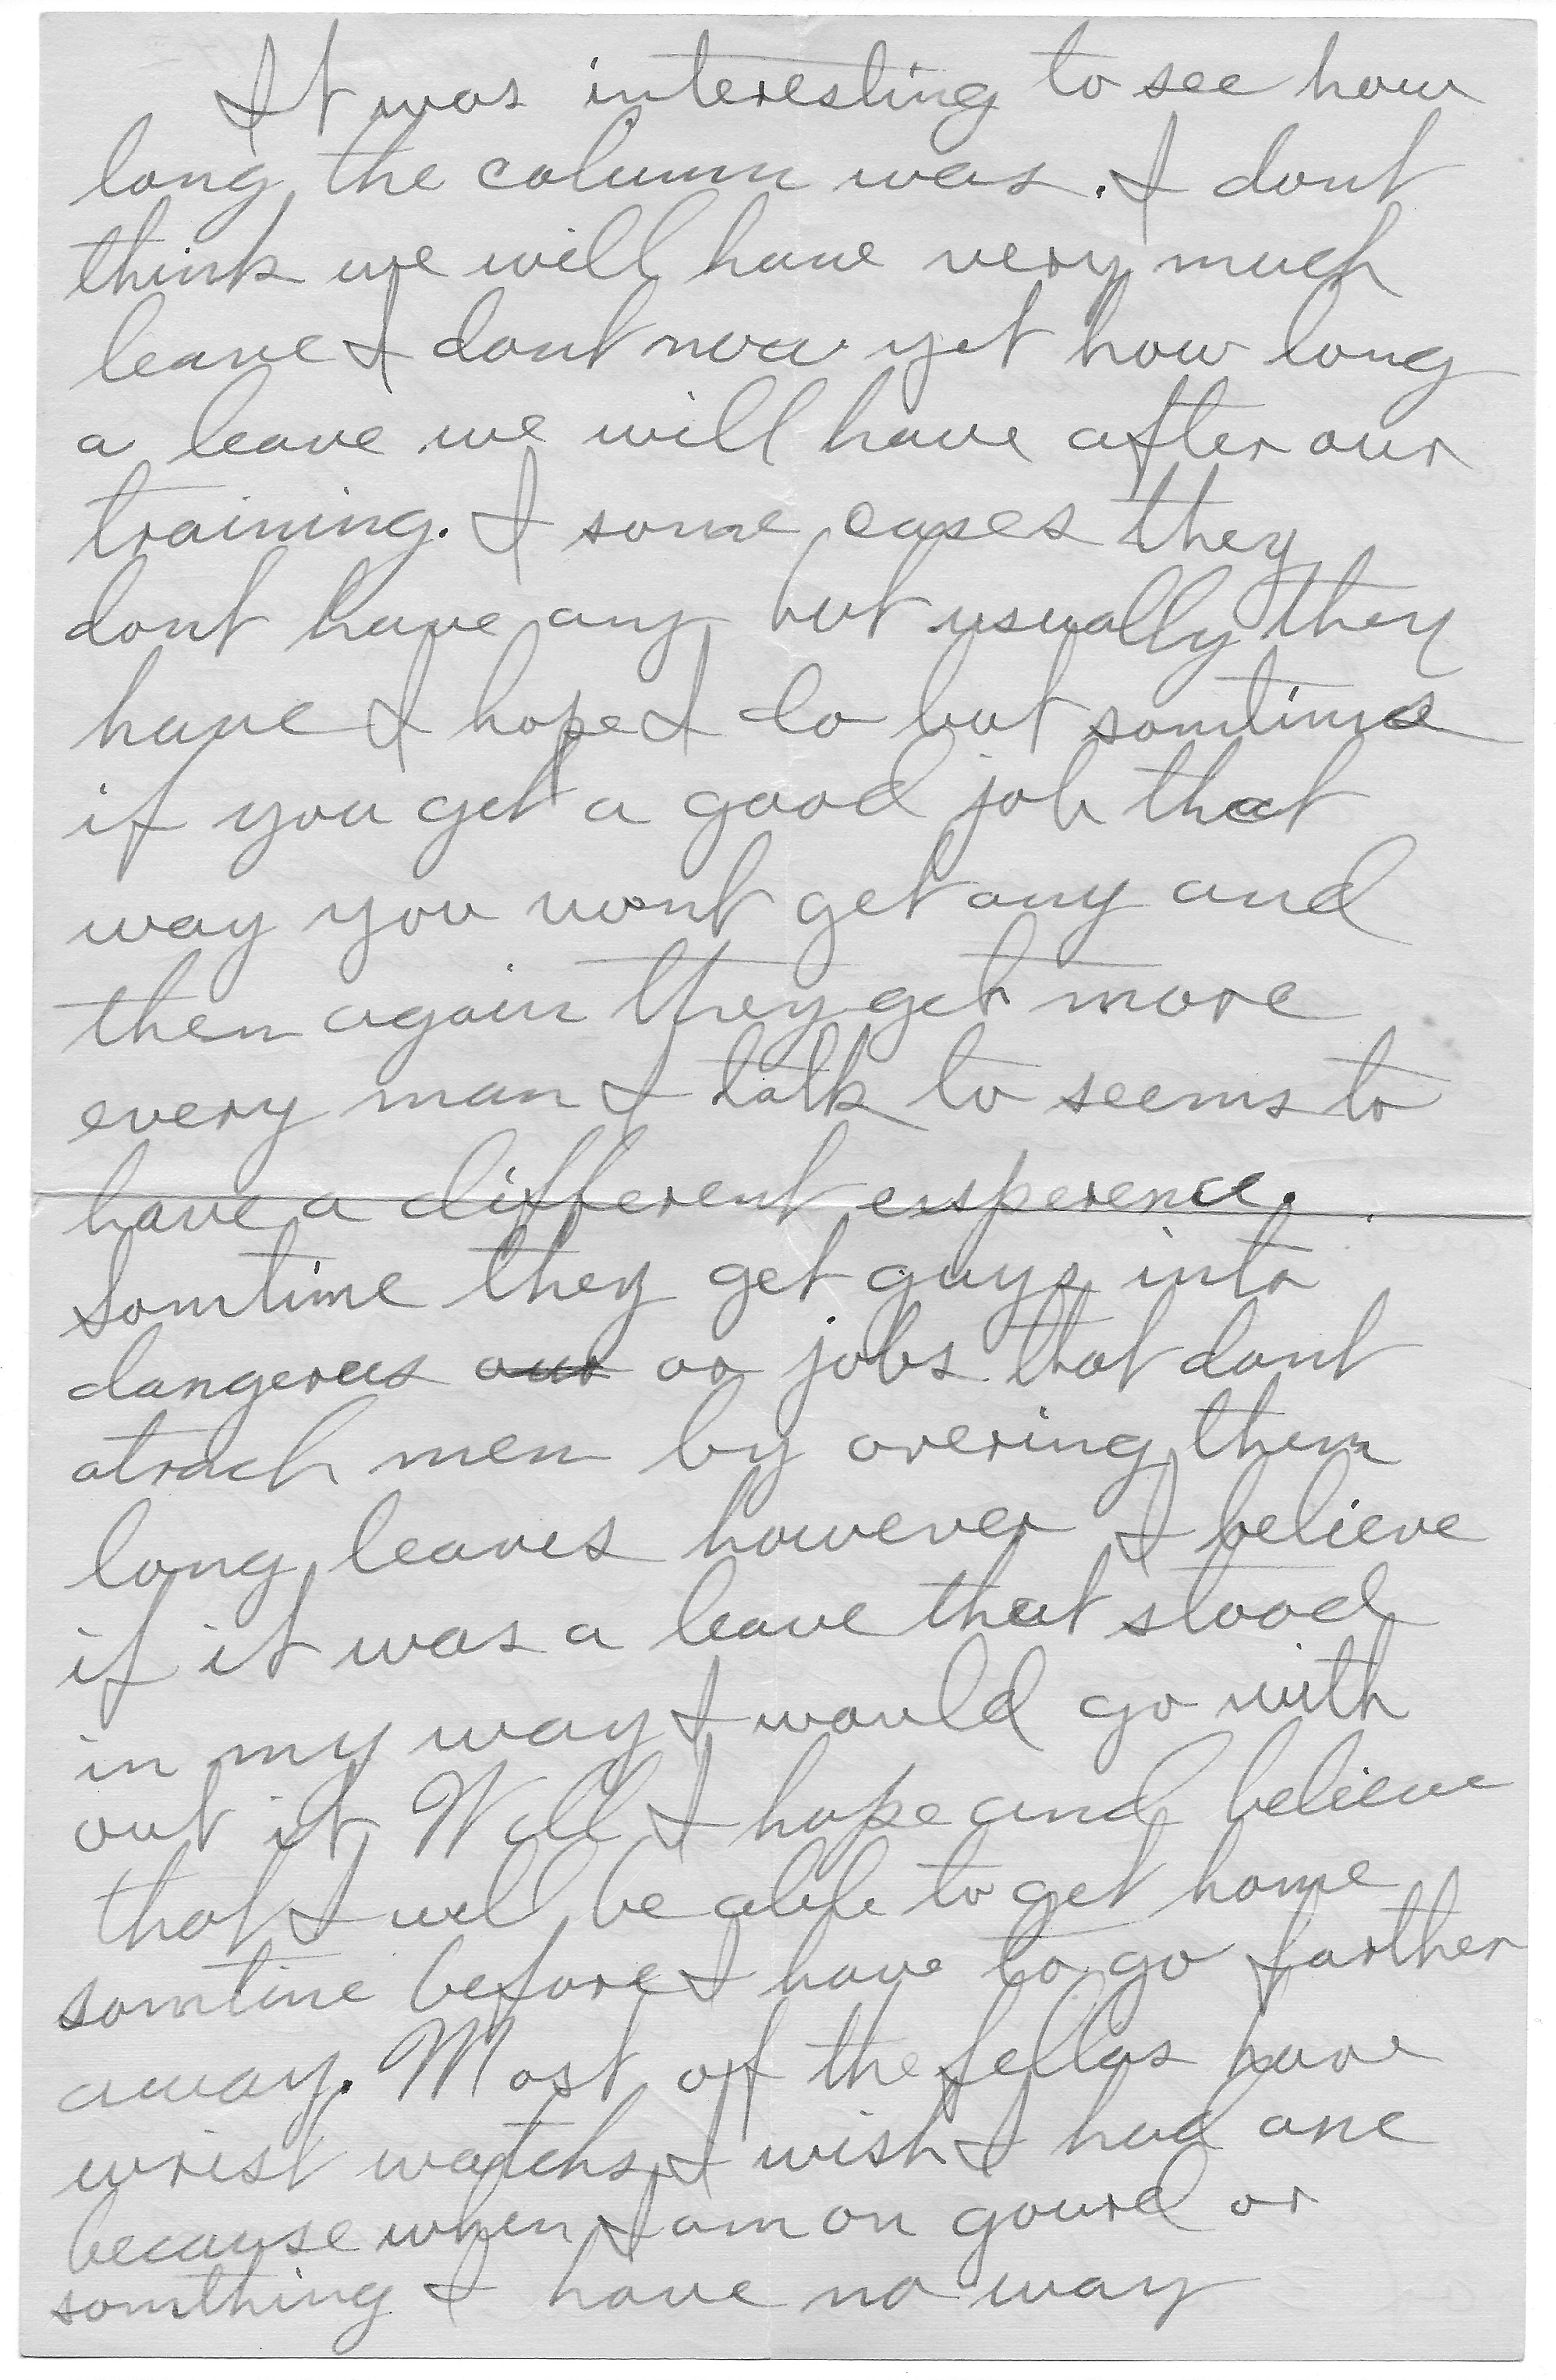 It was interesting to see how
long the column was. I dont
think we will have very much
leave I dont now yet how long
a leave we will have after our
training. I some cases they
dont have any but usually they
have I hope I do but somtimes
if you get a good job that
way you wont get any and
then again they get more
every man I talk to seems to
have a different experence.
Somtime they get guys into
dangerous our or jobs that dont
atrach men by overing them
long leaves however I believe
if it was a leave that stood
in my way I would go with
out it Well I hope and believe
that I will be able to get home
somtime before I have to go farther
away. Most of the fellas have
wrist watchs I wish I had one
because when I am on gourd or
somthing I have no way